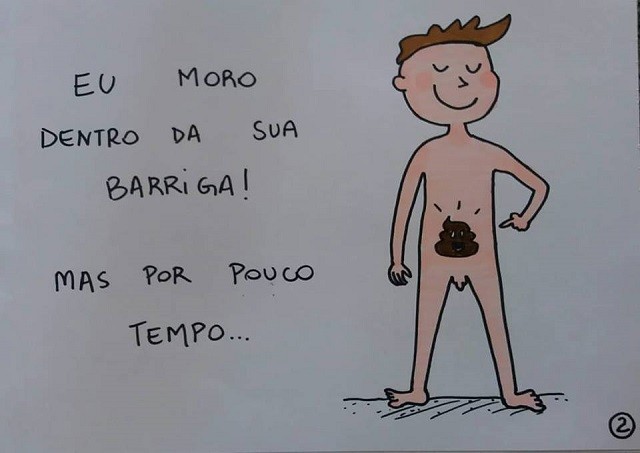 EU MORO
DENTRO DA SUA
BARRIGA!
MAS POR POUCO
TEMPO...
2